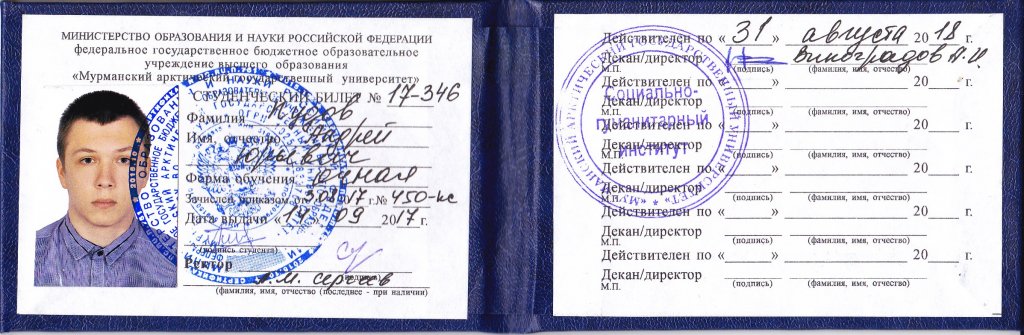 МИНИСТЕРСТВО ОБРАЗОВАНИЯ И НАУКИ РОССИЙСКОЙ ФЕДЕРАЦИИ
федеральное государственное бюджетное образовательное
учреждение высшего образования
«Мурманский арктический государственный университет»
СТУДЕНЧЕСКИЙ БИЛЕТ № 17-346
Фамилия
Имя, отчество
Юрьевич
Форма обучения очная
Зачислен приказом от 08 17 г. № 450-нс
Дата выдачи « 14 » 09 2017 г.
(подпись студента)
Ректор
(подпись)
А.М. Сергеев
(фамилия, имя, отчество (последнее - при наличии)
Действителен по « 31 » августа 20 18 г.
Декан/директор Виноградов А.И.
М.П. (подпись) (фамилия, имя, отчество)
Действителен по « » 20 г.
Декан/директор
М.П. (подпись) (фамилия, имя, отчество)
Действителен по « » 20 г.
Декан/директор
М.П. (подпись) (фамилия, имя, отчество)
Действителен по « » 20 г.
Декан/директор
М.П. (подпись) (фамилия, имя, отчество)
Действителен по « » 20 г.
Декан/директор
М.П. (подпись) (фамилия, имя, отчество)
Действителен по « » 20 г.
Декан/директор
М.П. (подпись) (фамилия, имя, отчество)
Социально-
гуманитарный
институт